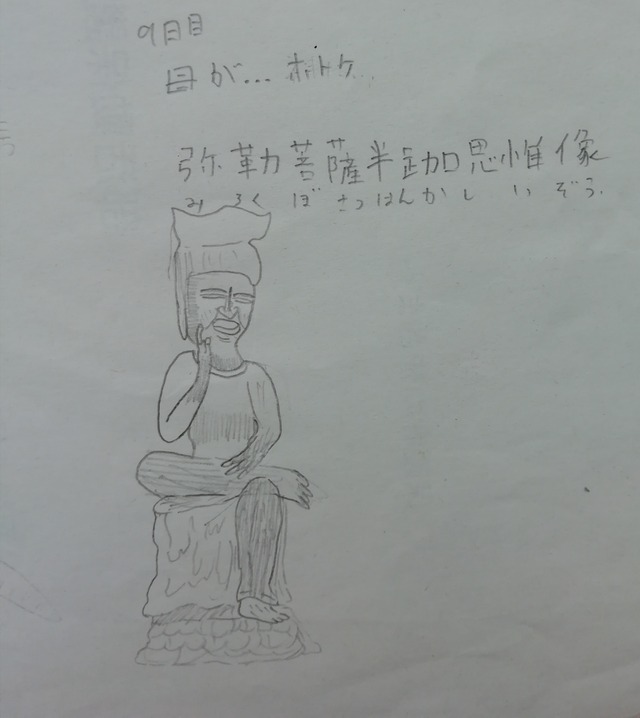 9日目
母が…ホトケ
弥勒菩薩半跏思惟像
みろくぼさつはんかしいぞう.